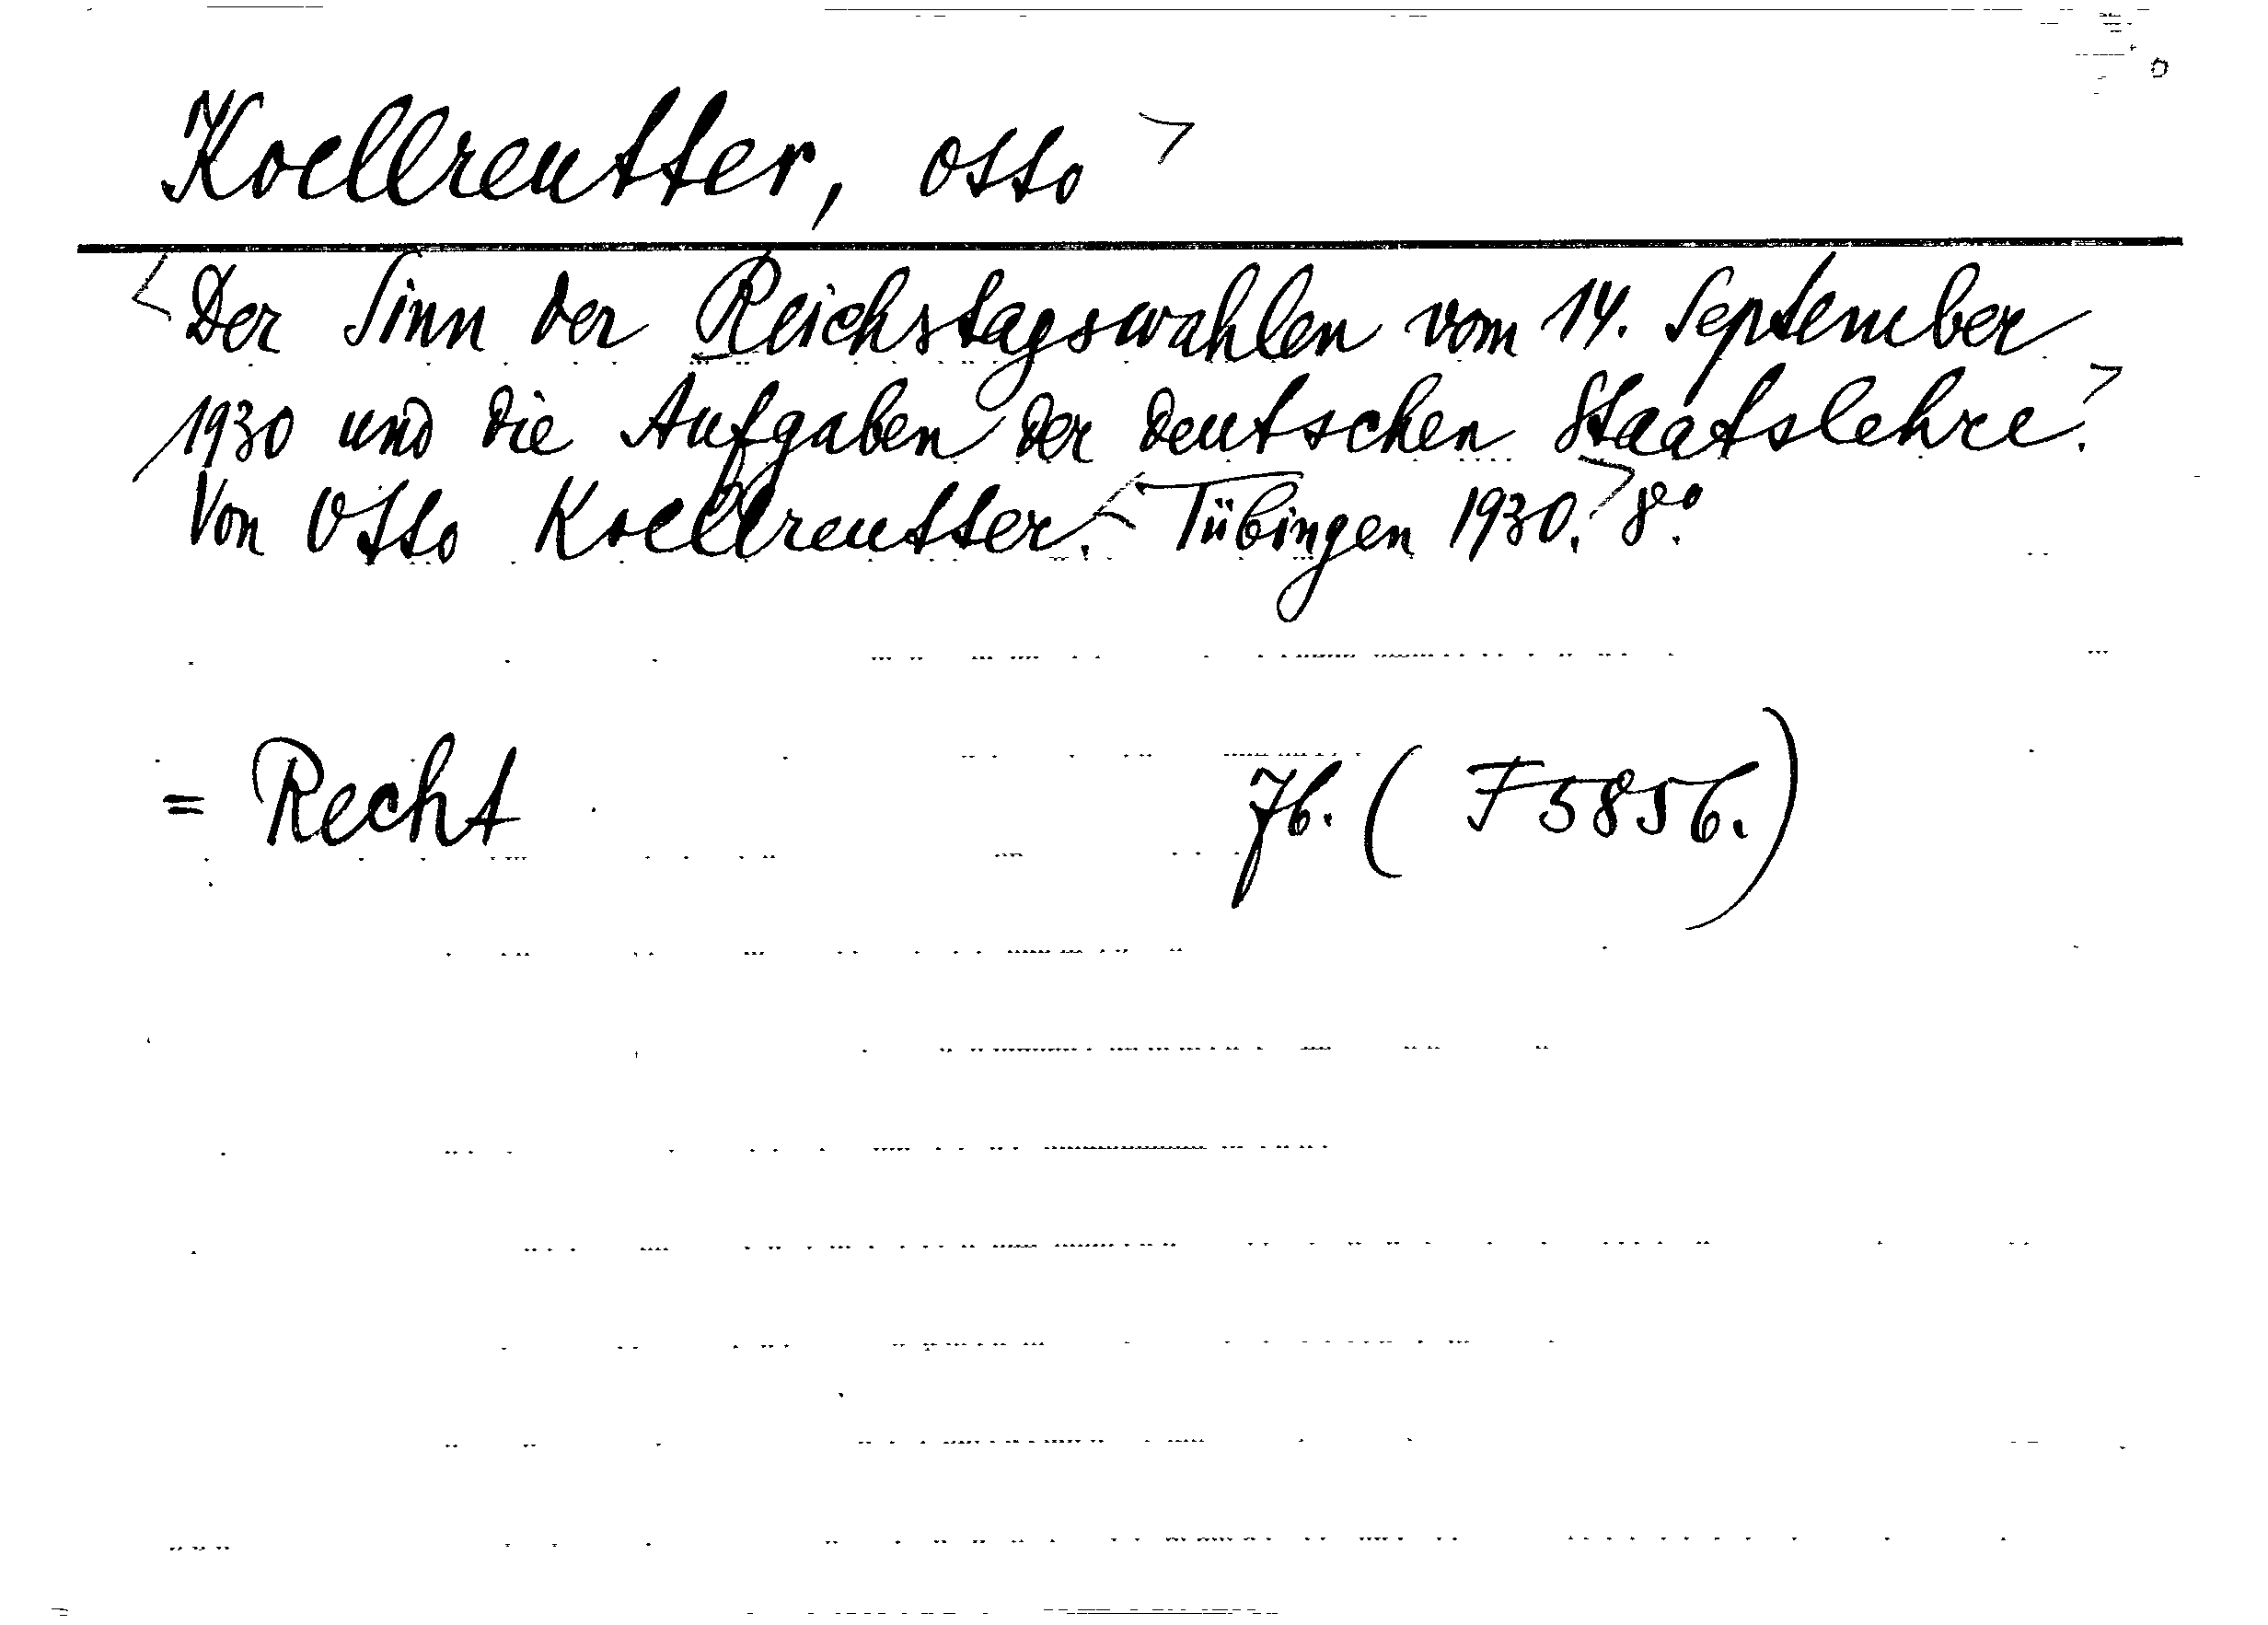 Koellreutter, Otto >
< Der Sinn der Reichstagswahlen vom 14. September
1930 und die Aufgaben der deutschen Staatslehre. >
Von Otto Koellreutter. < Tübingen 1930. > 8°.
= Recht Jb. ( F 5856. )